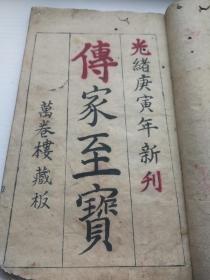 光緒庚寅年新刊
傳家至寶
萬卷樓藏板